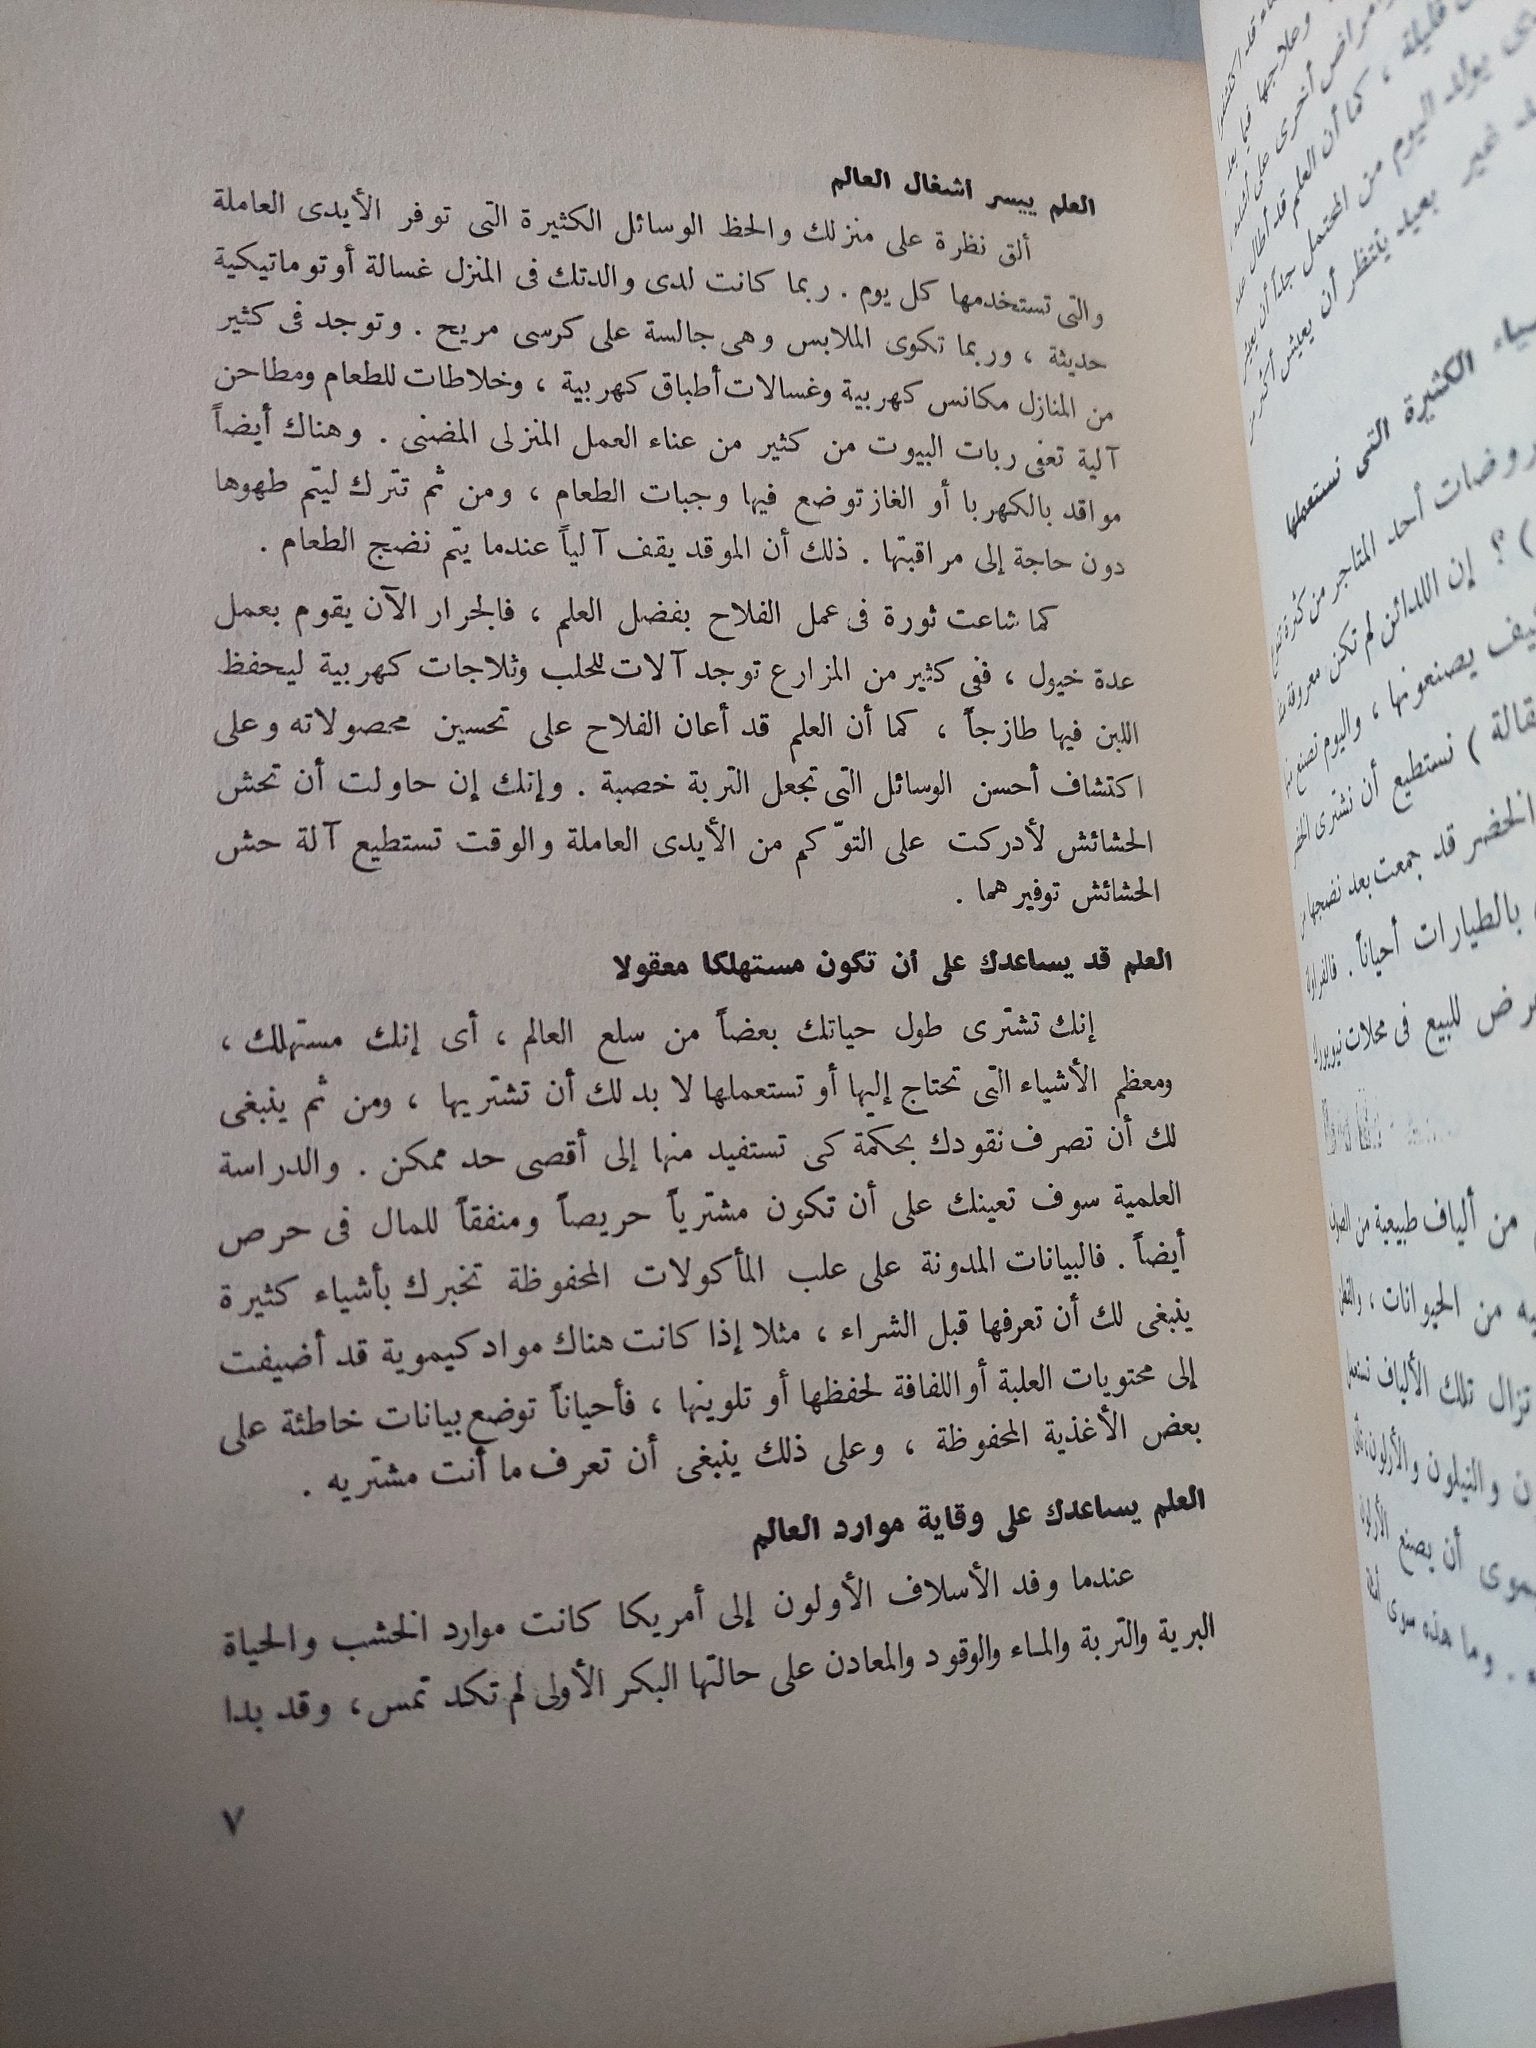 العلم ييسر اشغال العالم
ألق نظرة على منزلك والحظ الوسائل الكثيرة التى توفر الأيدى العاملة
والتى تستخدمها كل يوم . ربما كانت لدى والدتك فى المنزل غسالة أوتوماتيكية
حديثة ، وربما تكوى الملابس وهى جالسة على كرسى مريح . وتوجد فى كثير
من المنازل مكانس كهربية وغسالات أطباق كهربية ، وخلاطات للطعام ومطاحن
آلية تعفى ربات البيوت من كثير من عناء العمل المنزلى المضنى . وهناك أيضاً
مواقد بالكهربا أو الغاز توضع فيها وجبات الطعام ، ومن ثم تترك ليتم طهوها
دون حاجة إلى مراقبتها . ذلك أن الموقد يقف آلياً عندما يتم نضج الطعام .
كما شاعت ثورة فى عمل الفلاح بفضل العلم ، فالجرار الآن يقوم بعمل
عدة خيول ، ففى كثير من المزارع توجد آلات للحلب وثلاجات كهربية ليحفظ
اللبن فيها طازجاً ، كما أن العلم قد أعان الفلاح على تحسين محصولاته وعلى
اكتشاف أحسن الوسائل التى تجعل التربة خصبة . وإنك إن حاولت أن تحش
الحشائش لأدركت على التوّ كم من الأيدى العاملة والوقت تستطيع آلة حش
الحشائش توفيرهما .
العلم قد يساعدك على أن تكون مستهلكا معقولا
إنك تشترى طول حياتك بعضاً من سلع العالم ، أى إنك مستهلك ،
ومعظم الأشياء التى تحتاج إليها أو تستعملها لا بد لك أن تشتريها ، ومن ثم ينبغى
لك أن تصرف نقودك بحكمة كى تستفيد منها إلى أقصى حد ممكن . والدراسة
العلمية سوف تعينك على أن تكون مشترياً حريصاً ومنفقاً للمال فى حرص
أيضاً . فالبيانات المدونة على علب المأكولات المحفوظة تخبرك بأشياء كثيرة
ينبغى لك أن تعرفها قبل الشراء ، مثلا إذا كانت هناك مواد كيموية قد أضيفت
إلى محتويات العلبة أو اللفافة لحفظها أو تلوينها ، فأحياناً توضع بيانات خاطئة على
بعض الأغذية المحفوظة ، وعلى ذلك ينبغى أن تعرف ما أنت مشتريه .
العلم يساعدك على وقاية موارد العالم
عندما وفد الأسلاف الأولون إلى أمريكا كانت موارد الخشب والحياة
البرية والتربة والماء والوقود والمعادن على حالتها البكر الأولى لم تكد تمس ، وقد بدا
٧
وعلاجها فيما بعد
أمراض أخرى على
قليلة ، كما أن العلم قد أطال
يولد اليوم من المحتمل جداً أن
غير بعيد ينتظر أن يعيش أكثر من
الكثيرة التى نستعملها
روضات أحد المتاجر من كثرة
) ؟ إن اللدائن لم تكن معروفة
يف يصنعونها ، واليوم نصنع
) نستطيع أن نشترى
الخضر قد جمعت بعد نضجها
بالطيارات أحياناً . فالفراولة
رض للبيع فى محلات نيويورك
من ألياف طبيعية من
يه من الحيوانات ،
تزال تلك الألياف
ن والنيلون والأرلون
أن يصنع
. وما هذه سوى